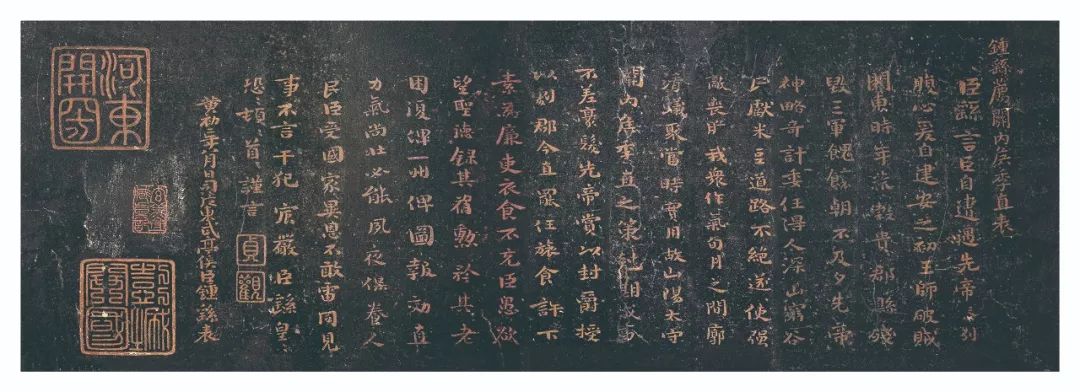 鍾繇薦關內侯季直表
臣繇言臣自遭遇先帝忝列
腹心爰自建安之初王師破賊
關東時年荒穀貴郡縣殘
毀三軍餽饟朝不及夕先帝
神略奇計委任得人深山窮谷
民獻米豆道路不絕遂使強
敵喪膽我眾作氣旬月之間廓
清蟻聚當時實用故山陽太守
關內侯季直之策剋期成事
不差豪髮先帝賞以封爵授
以劇郡今直罷任旅食許下
素為廉吏衣食不充臣愚欲
望聖德錄其舊勳矜其老
困復俾一州俾圖報効直
力氣尚壯必能夙夜保養人
民臣受國家異恩不敢雷同見
事不言干犯宸嚴臣繇皇
恐〻頓〻首〻謹言
黃初二年八月日司徒東武亭侯臣鍾繇表
貞觀
河東